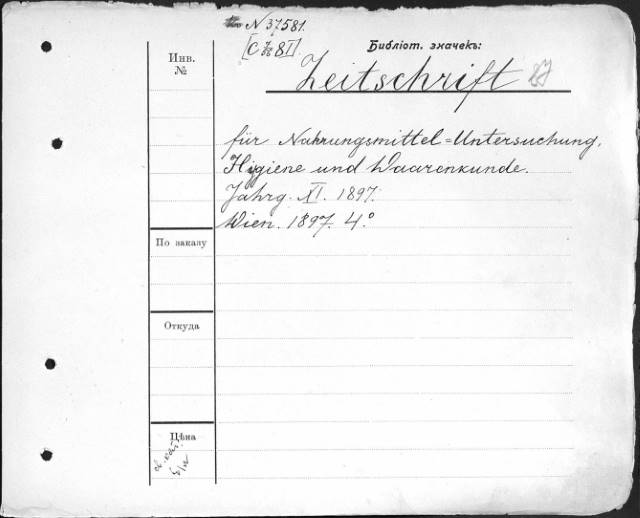 N 37581.
Библіот. значекъ:
Инв.
№
Zeitschrift
für Nahrungsmittel=Untersuchung,
Hygiene und Waarenkunde.
Jahrg. XI. 1897.
Wien. 1897. 4.º
По заказу
Откуда
Цѣна